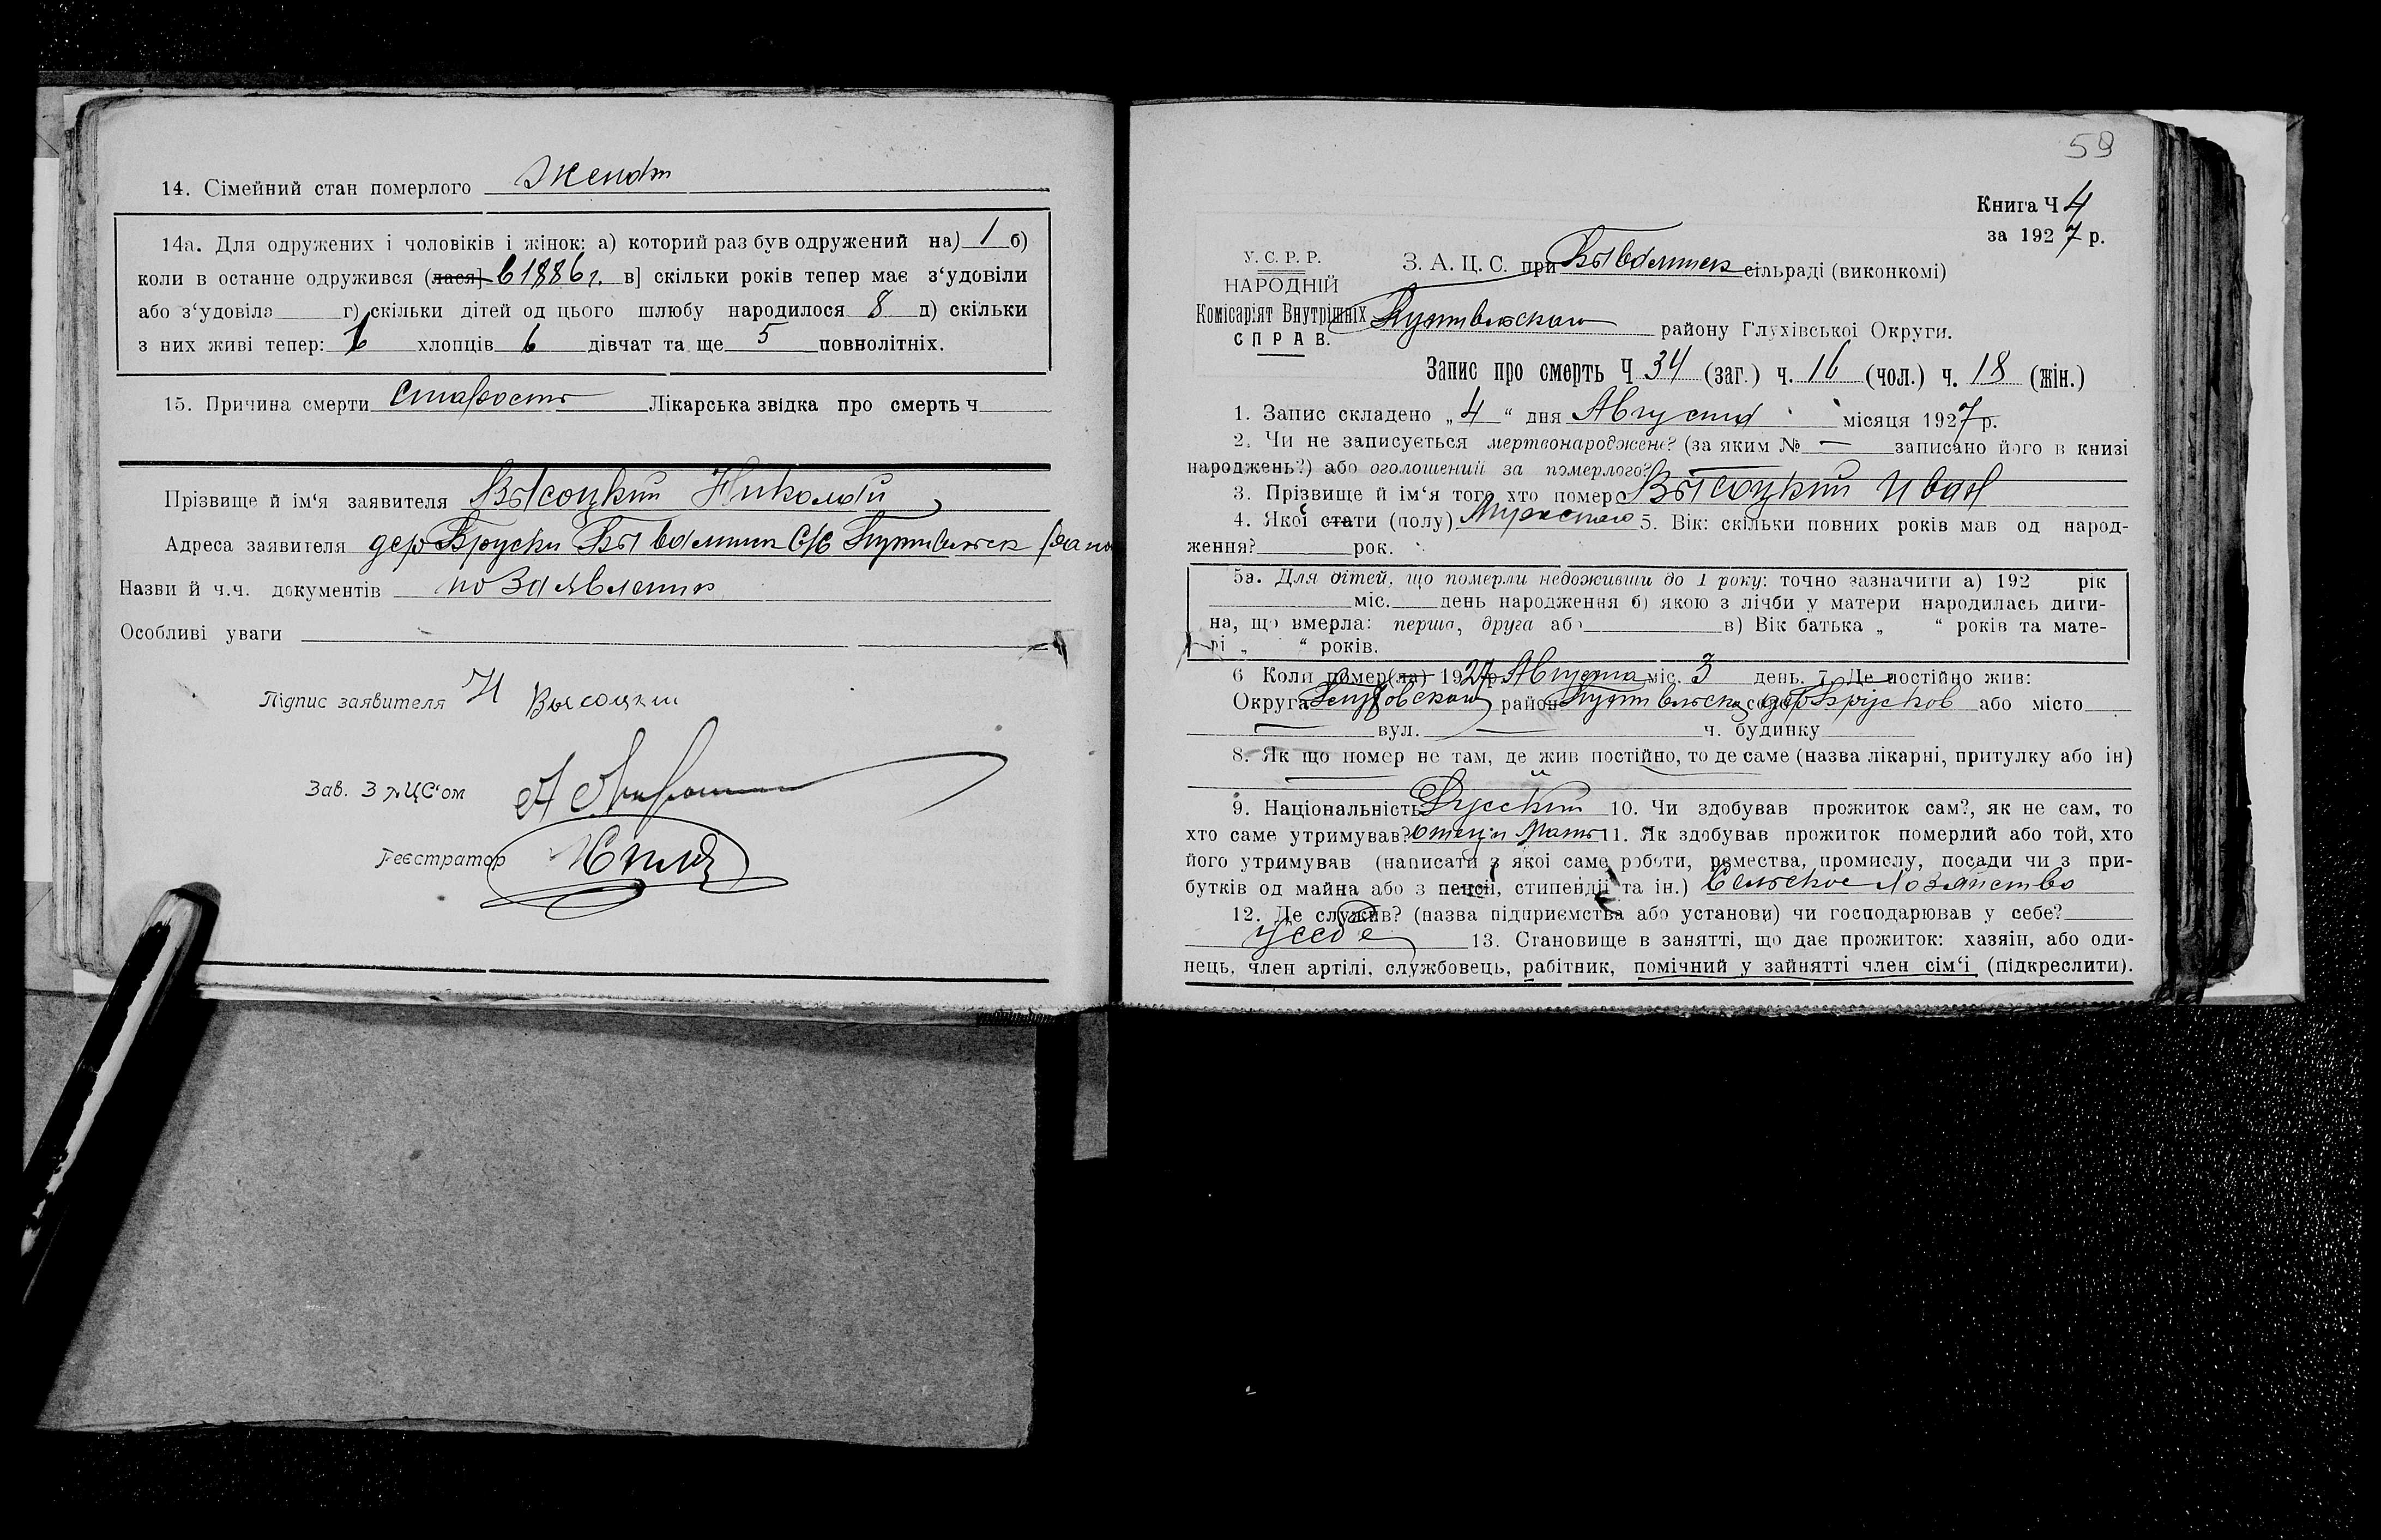 14. Сімейний стан померлого Женат
14а. Для одружених і чоловіків і жінок: а) которий раз був одружений на) 1 б)
коли в останне одружився (лася] в 1886 г. в] скільки років тепер має з‘удовіли
або з‘удовіла г) скільки дітей од цього шлюбу народилося 8 д) скільки
з них живі тепер: хлопців 6 дівчат та ще 5 повнолітніх.
15. Причина смерти Старость Лікарська звідка про смерть ч
Прізвище й ім‘я заявителя Высоцкий Николай
Адреса заявителя дер Бруски С/С Путивльск
Назви й ч.ч. документів по Заявлению
Особливі уваги
Підпис заявителя Н Высоцкий
Зав. ЗАЦС‘ом
Реєстратор
59
Книга Ч 4
за 1927 р.
У. С. Р. Р.
НАРОДНІЙ
Комісаріят Внутрішніх
СПРАВ.
З. А. Ц. С. при сільраді (виконкомі)
Путивльском району Глухівської Округи.
Запис про смерть Ч 34 (заг.) ч. 16 (чол.) ч. 18 (жін.)
1. Запис складено „ 4 “ дня Августа місяця 1927 р.
2. Чи не записується мертвонароджене? (за яким № — записано його в книзі
народжень?) або оголошений за померлого?
3. Прізвище й ім‘я того, хто помер Высоцкий Иван
4. Якої стати (полу) Мужского 5. Вік: скільки повних років мав од народ-
ження? рок.
5а. Для дітей, що померли недоживши до 1 року: точно зазначити а) 192 рік
міс. день народження б) якою з лічби у матери народилась дити-
на, що вмерла: перша, друга або в) Вік батька „ “ років та мате-
рі „ “ років.
6 Коли помер(ла) 1927 р. Августа міс. 3 день. 7. Де постійно жив:
Округа Глуховской район Путивльск село дер Брусков або місто
вул. — ч. будинку
8. Як що помер не там, де жив постійно, то де саме (назва лікарні, притулку або ін)
9. Національність Русский 10. Чи здобував прожиток сам?, як не сам, то
хто саме утримував? отец и Мать 11. Як здобував прожиток померлий або той, хто
його утримував (написати з якої саме роботи, ремества, промислу, посади чи з при-
бутків од майна або з пенсії, стипендії та ін.) Сельское Хозяйство
12. Де служив? (назва підприємства або установи) чи господарював у себе?
у себе 13. Становище в занятті, що дає прожиток: хазяін, або оди-
нець, член артілі, службовець, рабітник, помічний у зайнятті член сім‘і (підкреслити).